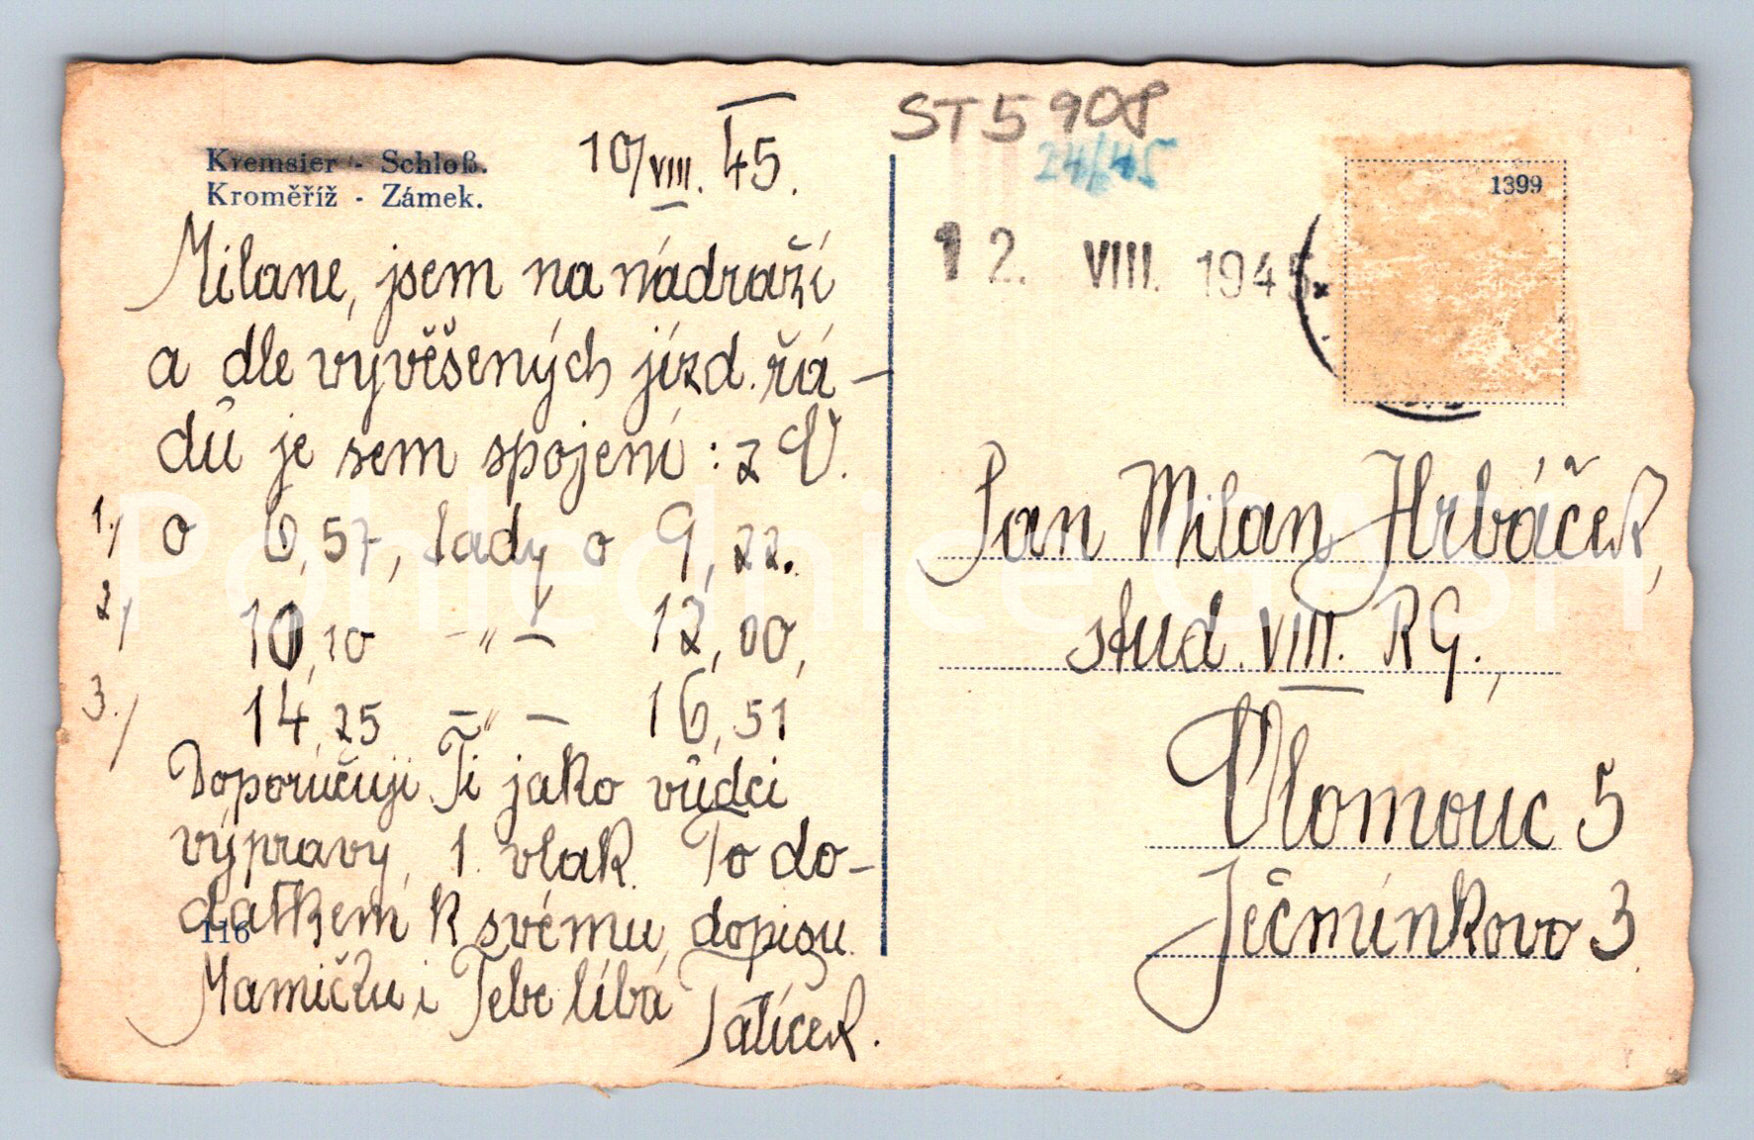 Kremsier - Schloß.
Kroměříž - Zámek.
10/VIII. 45.
Milane, jsem na nádraží
a dle vyvěšených jízd. řá-
dů je sem spojení: z O.
1./ o 6,57, tady o 9,22.
2./ 10,10 -"- 12,00,
3./ 14,25 -"- 16,51
Doporučuji Ti jako vůdci
výpravy, 1. vlak. To do-
datkem k svému dopisu.
116
Mamičku i Tebe líbá
Tatíček.
ST5908
24/45
12. VIII. 1945
1399
Pan Milan Hrbáček,
stud. VIII. RG.,
Olomouc 5
Ječmínkova 3.